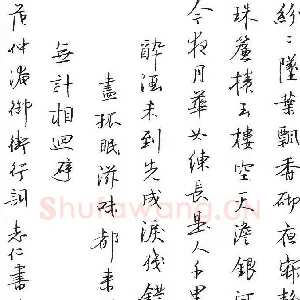 紛〻墜葉飄香砌夜寂
珠簾捲玉樓空天澹銀河
今夜月華如練長是人千里
醉酒未到先成淚殘
盡孤眠滋味都来
無計相迴避
范仲淹御街行詞志仁書
Shufawang.CN